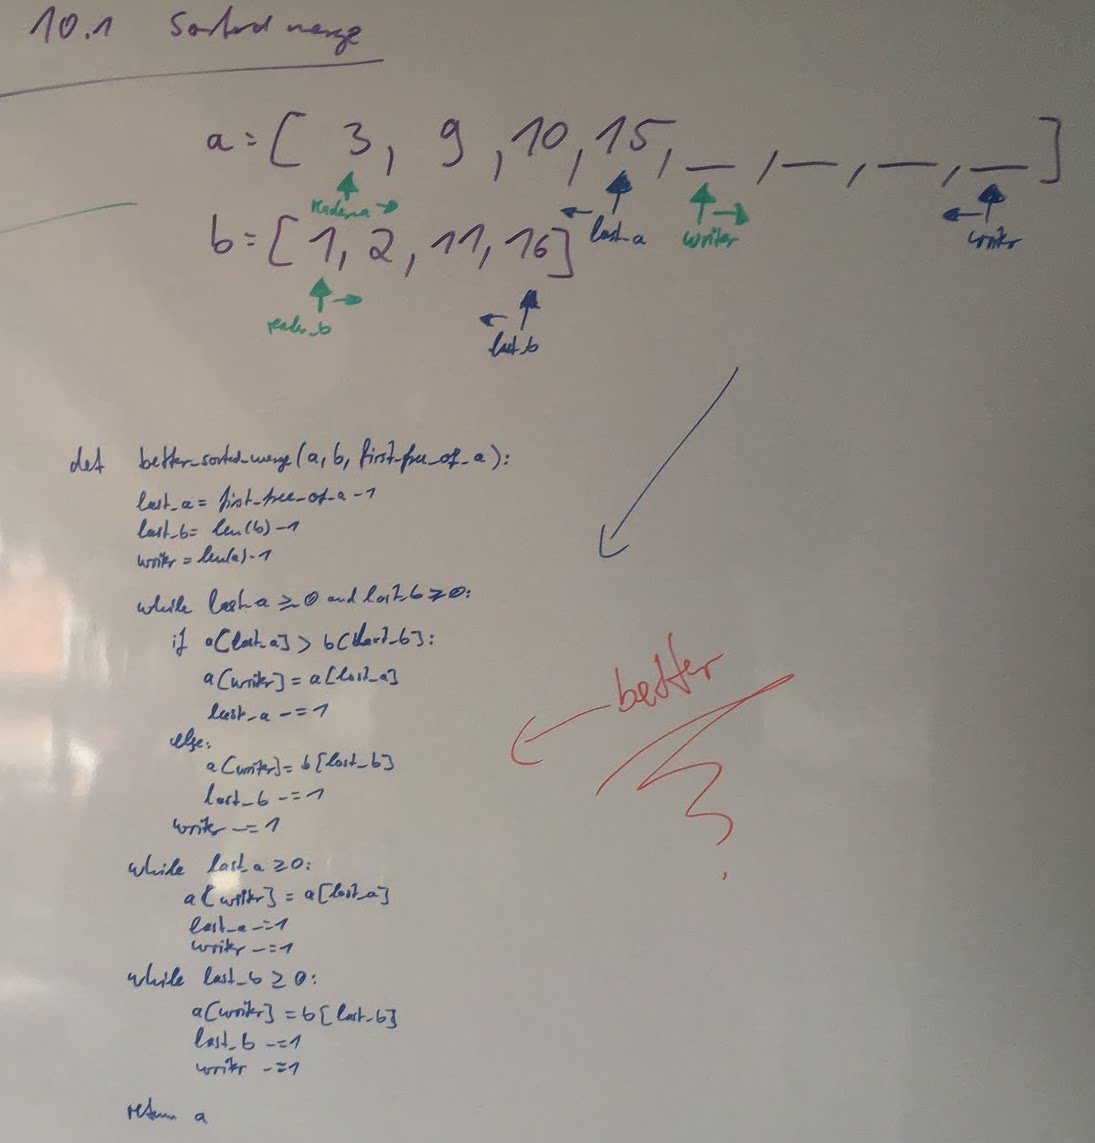 10.1 Sorted merge
a = [ 3, 9, 10, 15, _, _, _, _ ]
reader_a last_a writer writer
b = [ 1, 2, 11, 16 ]
reader_b last_b
def better_sorted_merge(a, b, first_free_of_a):
last_a = first_free_of_a - 1
last_b = len(b) - 1
writer = len(a) - 1
while last_a ≥ 0 and last_b ≥ 0:
if a[last_a] > b[last_b]:
a[writer] = a[last_a]
last_a -= 1
else:
a[writer] = b[last_b]
last_b -= 1
writer -= 1
while last_a ≥ 0:
a[writer] = a[last_a]
last_a -= 1
writer -= 1
while last_b ≥ 0:
a[writer] = b[last_b]
last_b -= 1
writer -= 1
return a
better